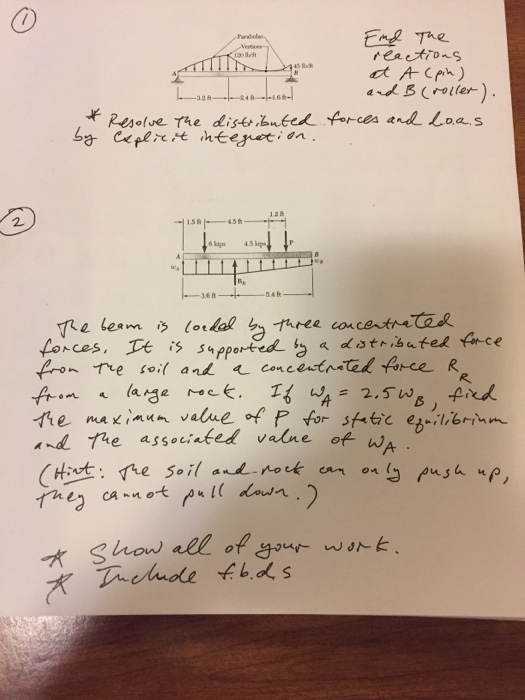 1
Parabolas
Vertices
120 lb/ft
45 lb/ft
A
B
3.2 ft
2.4 ft
1.6 ft
Find The
reactions
at A (pin)
and B (roller).
* Resolve The distributed forces and l.o.a.s
by explicit integration.
2
1.2 ft
1.5 ft
4.5 ft
6 kips
4.5 kips
P
A
B
wA
wB
RR
3.6 ft
5.4 ft
The beam is loaded by three concentrated
forces. It is supported by a distributed force
from the soil and a concentrated force RR
from a large rock. If wA = 2.5 wB, find
the maximum value of P for static equilibrium
and the associated value of wA.
(Hint: The soil and rock can only push up,
they cannot pull down.)
* Show all of your work.
* Include f.b.d.s